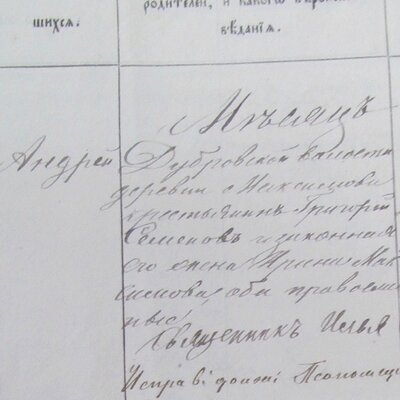 шихся.
родителей, и какого вѣроиспо
вѣданія.
Мѣсяцъ
Андрей
Дубровской волости
деревни
крестьянинъ Григорій
Семеновъ и законная
его жена Ирина Мак
симова, оба православ
ные
Священникъ Илья
Исправ